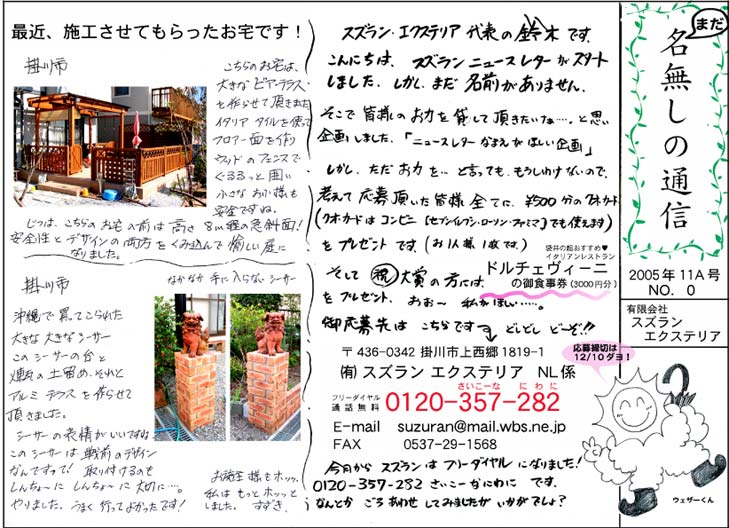 まだ
名無しの通信
2005年 11A号
NO. 0
有限会社
スズラン
エクステリア
スズラン・エクステリア 代表の鈴木です。
こんにちは、スズランニュースレターがスタート
しました。しかし、まだ名前がありません。
そこで皆様のお力を貸して頂きたいなぁ…。と思い
企画しました、「ニュースレターなまえがほしい企画」
しかし、ただお力を…と言っても、もうしわけないので、
考えて応募頂いた皆様全てに、¥500分のクオカード
(クオカードはコンビニ[セブンイレブン・ローソン・ファミマ]でも使えます)
をプレゼントです。(お1人様1枚です。)
袋井の超おすすめ♥
イタリアンレストラン
そして㊗大賞の方には、ドルチェヴィーニ
の御食事券(3000円分)
をプレゼント、おぉ~ 私がほしい……。
御応募先はこちらです どしどしどーぞ!!
応募締切は
12/10ダヨ!
〒436-0342 掛川市上西郷1819-1
(有) スズラン エクステリア NL係
フリーダイヤル
通話無料
さいこーな にわに
0120-357-282
E-mail suzuran@mail.wbs.ne.jp
FAX 0537-29-1568
今月からスズランはフリーダイヤルになりました!
0120-357-282 さいこーなにわに です。
なんとかごろあわせしてみましたがいかがでしょ?
ウェザーくん
最近、施工させてもらったお宅です!
掛川市
こちらのお宅は、
大きなビアテラス
を作らせて頂きました
イタリアタイルを使って
フロアー面を作り
ウッドのフェンスで
ぐるるっと囲い
小さなお子様も
安全ですね。
じつは、こちらのお宅の前は高さ8m程の急斜面!
安全性とデザインの両方をくみ込んで愉しい庭に
なりました。
掛川市
なかなか手に入らないシーサー
沖縄で買てこられた
大きな大きなシーサー
このシーサーの台と
煙瓦の土留め、それと
アルミテラスを作らせて
頂きました。
シーサーの表情がいいですね
このシーサーは戦前のデザイン
なんですって! 取り付けるのも
しんちょーにしんちょーに大切に…。
やりました。うまく行ってよかったです!
お施主様もホッ。
私はもっとホッッと
しました。すずき